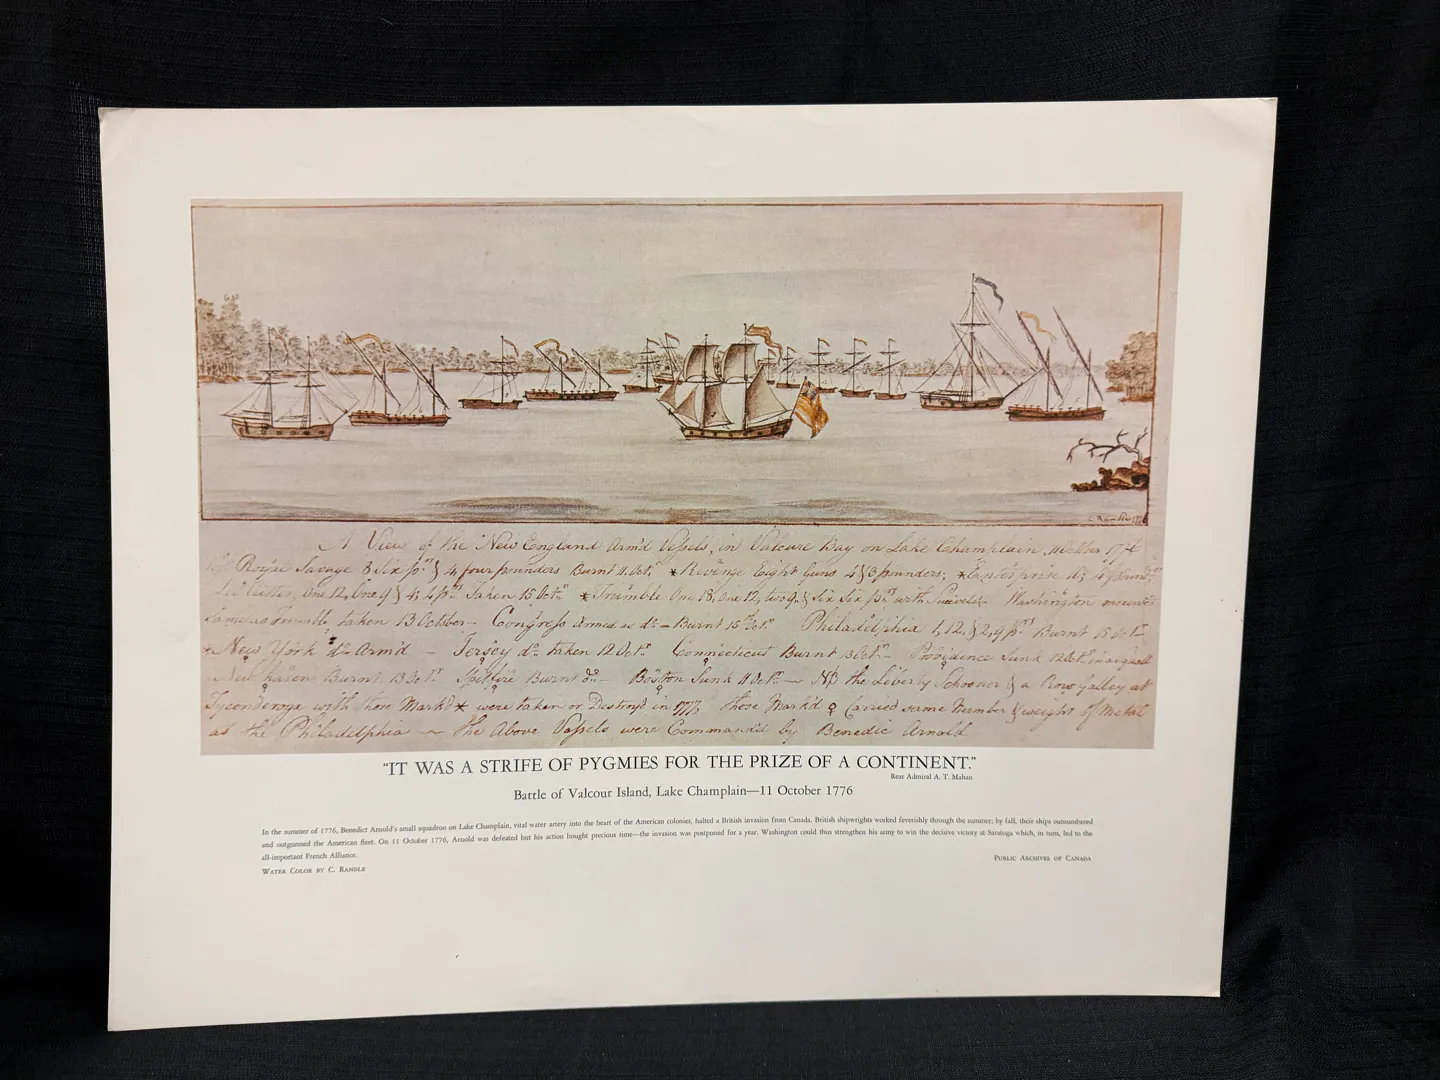 C. Randle 177
A View of the New England Arm'd Vessels, in Valcure Bay on Lake Champlain, 11 October 1776
Royal Savage 8 Six pr. & 4 four pounders Burnt 11 Oct. *Revenge Eight Guns 4 & 3 pounders; *Enterprise
One 12, One 9 & 4, 4 pr. Taken 13 Octr. *Trumble One 18, One 12, two 9, & Six Six pr. with Swivels Washington
same as Trumble taken 13 October — Congress Armed as do — Burnt 15 Octr. Philadelphia 1, 12, & 2, 9 prs. Burnt 15 Octr.
*New York do Arm'd — Jersey do taken 12 Octr. Connecticut Burnt 13 Octr. — Providence Sunk 12 Octr.
New haven Burnt 13 Octr. Spitfire Burnt do — Boston Sunk 11 Octr. — NB the Liberty Schooner & a Row Galley at
Tyconderoga with those Mark'd * were taken or Destroy'd in 1777 those Mark'd ♀ Carried same Number & weight of Metal
as the Philadelphia — the Above Vessels were Command'd by Benedic Arnold
"IT WAS A STRIFE OF PYGMIES FOR THE PRIZE OF A CONTINENT."
Rear Admiral A. T. Mahan
Battle of Valcour Island, Lake Champlain—11 October 1776
In the summer of 1776, Benedict Arnold's small squadron on Lake Champlain, vital water artery into the heart of the American colonies, halted a British invasion from Canada. British shipwrights worked feverishly through the summer; by fall, their ships outnumbered
and outgunned the American fleet. On 11 October 1776, Arnold was defeated but his action bought precious time—the invasion was postponed for a year. Washington could thus strengthen his army to win the decisive victory at Saratoga which, in turn, led to the
all-important French Alliance.
Public Archives of Canada
Water Color by C. Randle